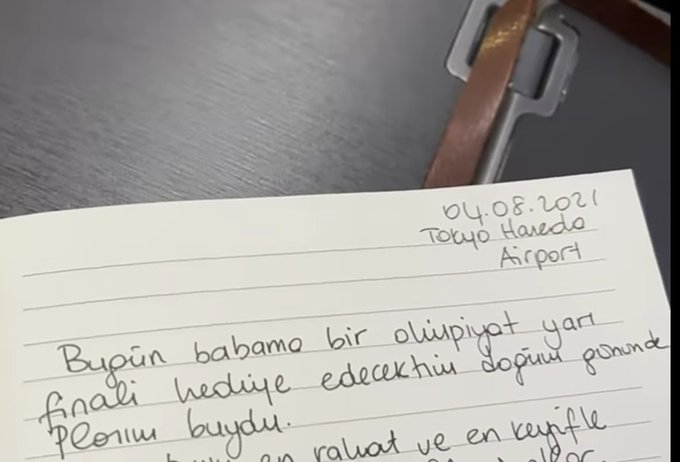 04.08.2021
Tokyo Haneda
Airport
Bugün babama bir olimpiyat yarı
finali hediye edecektim doğum gününde
Planım buydu.
en rahat ve en keyifle